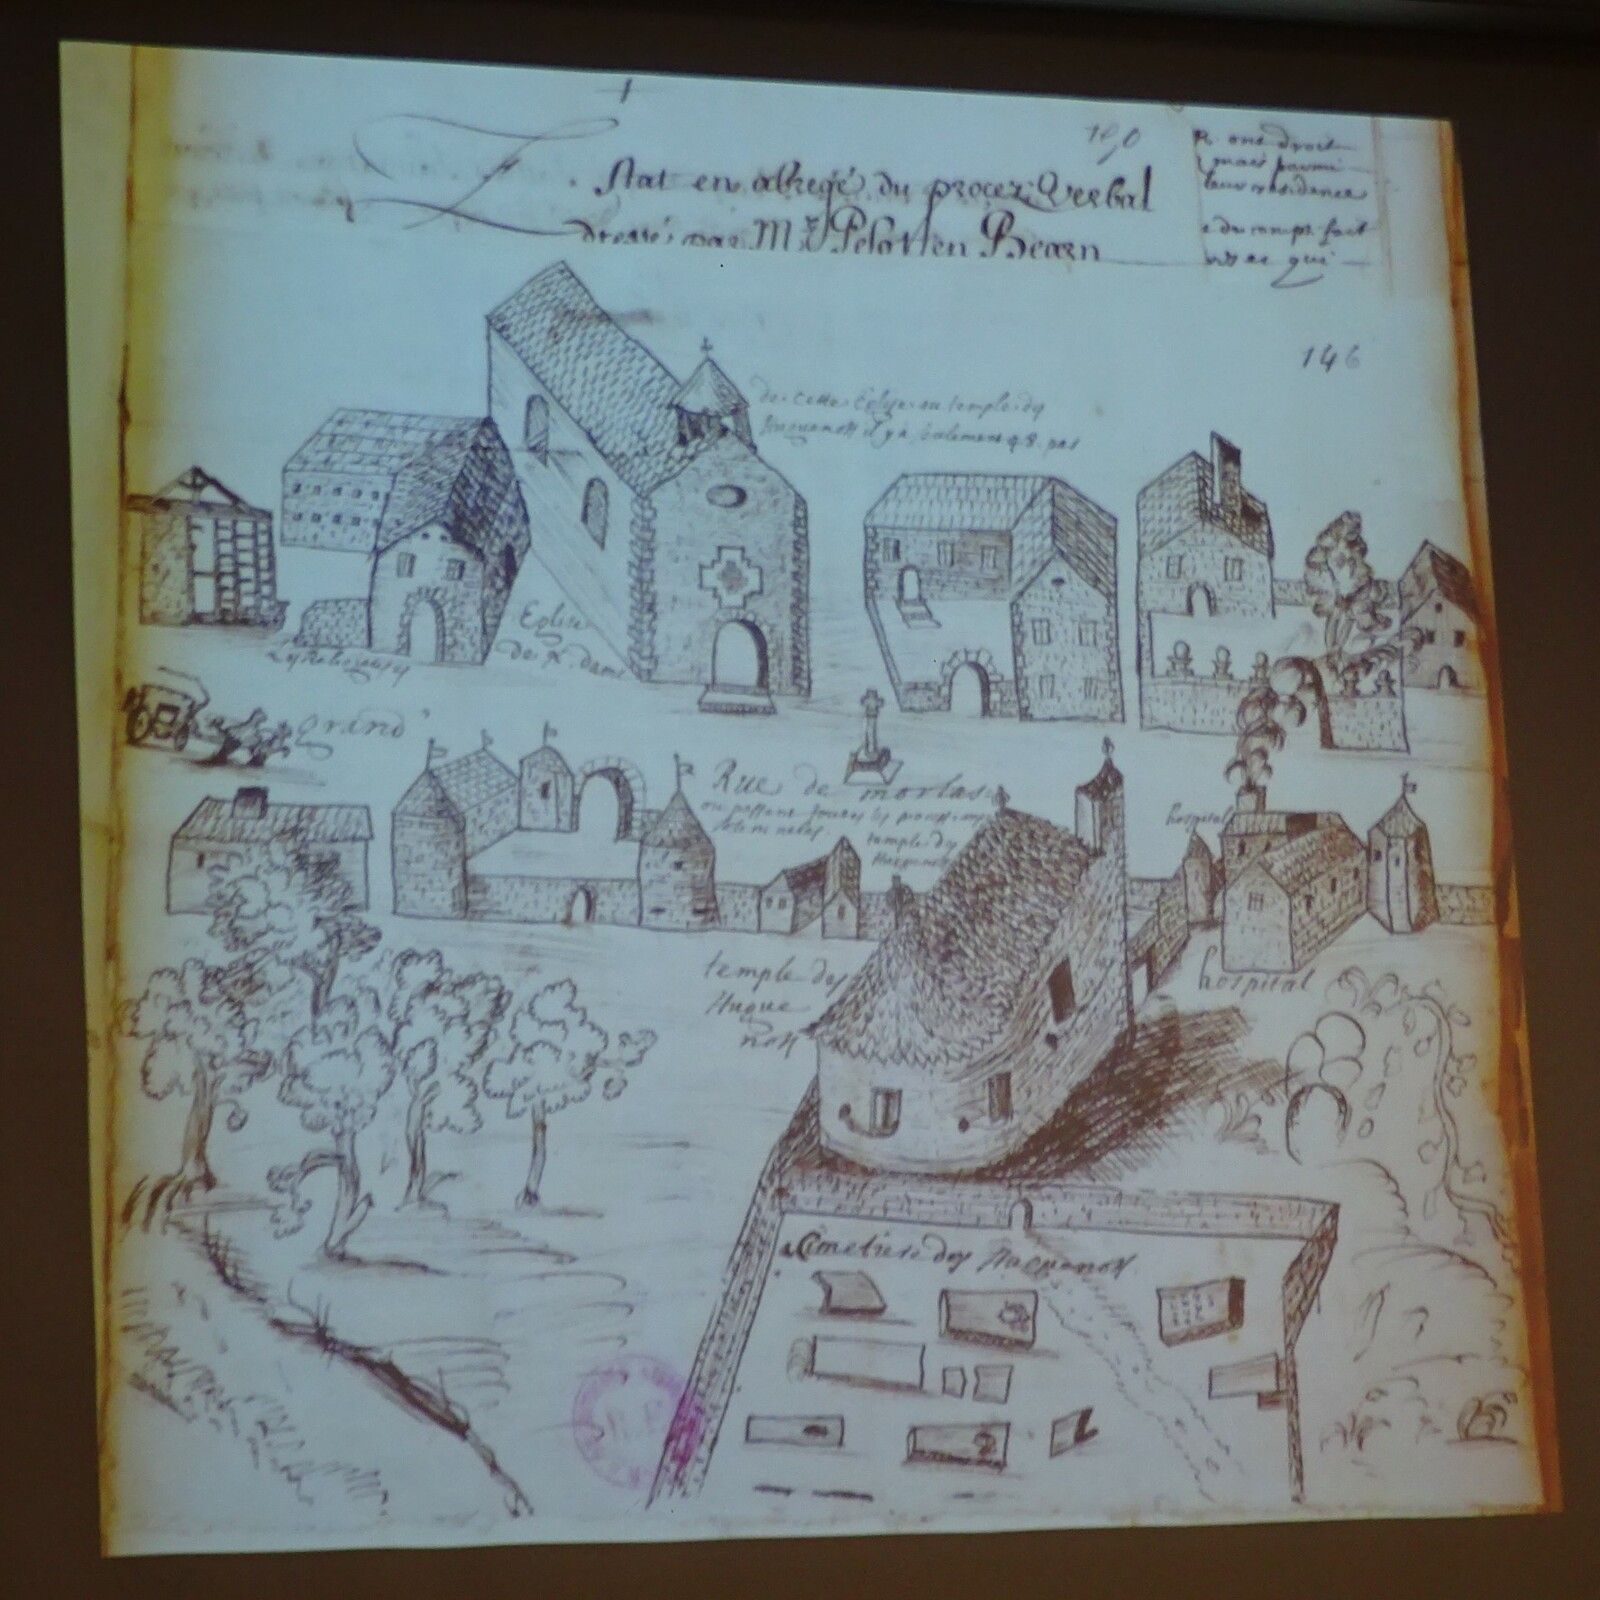 190
Estat en abregé du procez Verbal
dressé par Mr Pelot en Bearn
ont droit
parmi
leur residence
fait
qui
146
de cette Eglise au temple des
huguenots il y a seulement 98 pas
Eglise
de N. dame
grand
Rue de morlas
ou passent toutes les processions
solemneles
temple des
Huguenots
hospital
temple des
Hugue
nots
hospital
Cimetiere des Huguenots